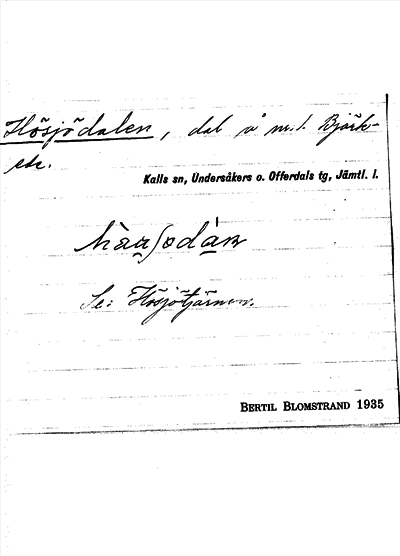 Hösjödalen, dal å nr. l. Björk-
ede.
Kalls sn, Undersåkers o. Offerdals tg, Jämtl. l.
Se: Hösjötjärnen.
BERTIL BLOMSTRAND 1935